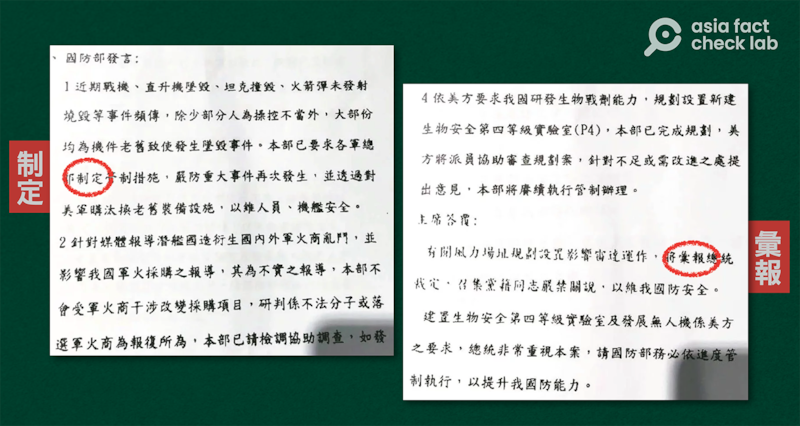 asia fact
check lab
、國防部發言:
1 近期戰機、直升機墜毀、坦克撞毀、火箭彈未發射
燒毀等事件頻傳,除少部分人為操控不當外,大部份
均為機件老舊致使發生墜毀事件。本部已要求各軍總
部制定管制措施,嚴防重大事件再次發生,並透過對
美軍購汰換老舊裝備設施,以維人員、機艦安全。
2 針對媒體報導潛艦國造衍生國內外軍火商亂鬥,並
影響我國軍火採購之報導,其為不實之報導,本部不
會受軍火商干涉改變採購項目,研判係不法分子或落
選軍火商為報復所為,本部已請檢調協助調查,如發
制定
4 依美方要求我國研發生物戰劑能力,規劃設置新建
生物安全第四等級實驗室(P4),本部已完成規劃,美
方將派員協助審查規劃案,針對不足或需改進之處提
出意見,本部將賡續執行管制辦理。
主席答覆:
有關風力場址規劃設置影響雷達運作,將彙報總統
裁定,召集黨籍同志嚴禁關說,以維我國防安全。
建置生物安全第四等級實驗室及發展無人機係美方
之要求,總統非常重視本案,請國防部務必依進度管
制執行,以提升我國防能力。
彙報